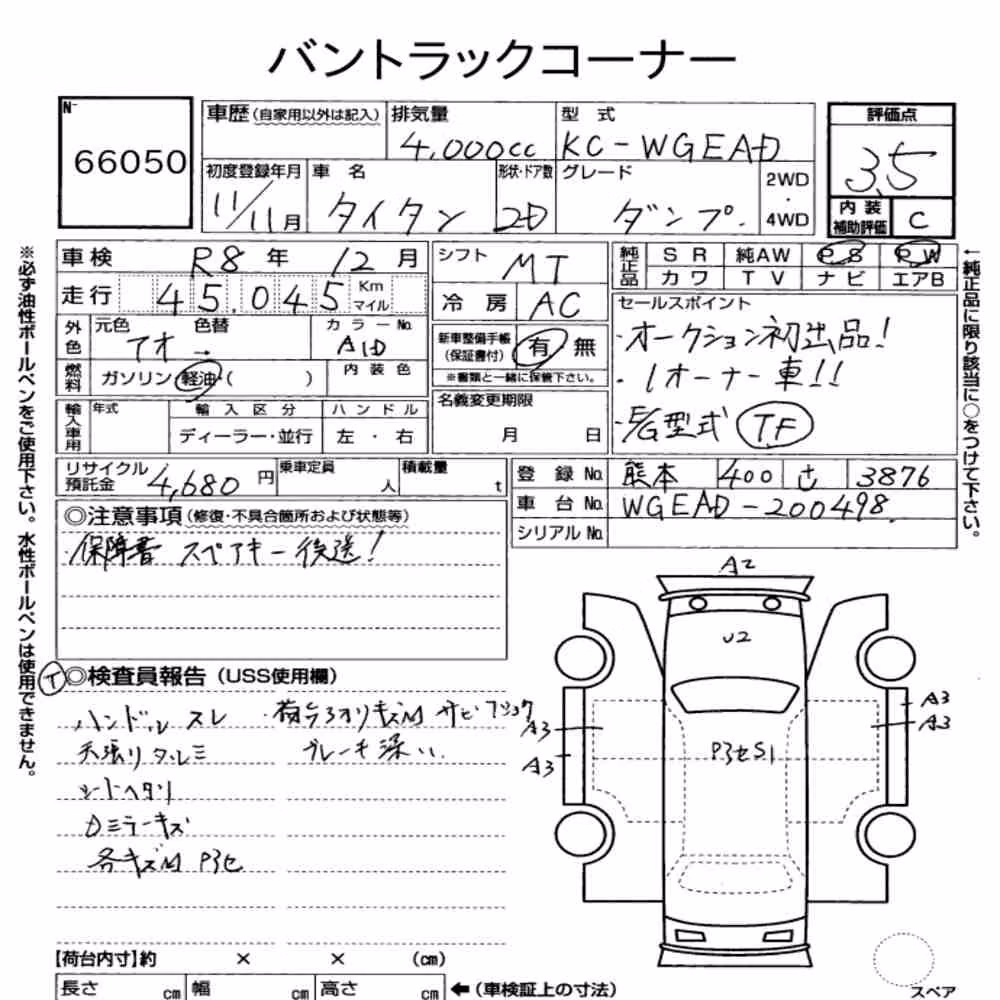 バントラックコーナー
No. 66050
車歴(自家用以外は記入) 排気量 4,000cc 型式 KC-WGEAD
評価点 3.5
初度登録年月 11/11月 車名 タイタン 形状・ドア数 2D グレード ダンプ. 2WD・4WD
内装補助評価 C
車検 R8年 12月
走行 45,045 Km マイル
外色 元色 アオ 色替 → カラーNo. A1D
燃料 ガソリン・軽油・( ) 内装色
輸入車用 年式 輸入区分 ディーラー・並行 ハンドル 左・右
リサイクル預託金 4,680円 乗車定員 人 積載量 t
シフト MT
冷房 AC
新車整備手帳(保証書付) 有 無
※書類と一緒に保管下さい。
名義変更期限 月 日
純正品 SR 純AW PS PW
カワ TV ナビ エアB
セールスポイント
・オークション初出品!
・1オーナー車!!
型式 TF
登録No. 熊本 400 さ 3876
車台No. WGEAD-200498
シリアルNo.
◎注意事項(修復・不具合箇所および状態等)
・保障書 スペアキー後送!
◎検査員報告(USS使用欄)
ハンドルスレ 荷台アオリキズM サビ
天張りタルミ ブレーキ深い
シートヘタリ
Dミラーキズ
各キズM P3セ
A2
U2
A3
A3
P3セS1
A3
A3
【荷台内寸】約 × × (cm)
長さ cm 幅 cm 高さ cm ←(車検証上の寸法)
スペア
※必ず油性ボールペンをご使用下さい。水性ボールペンは使用できません。
←純正品に限り該当に○をつけて下さい。